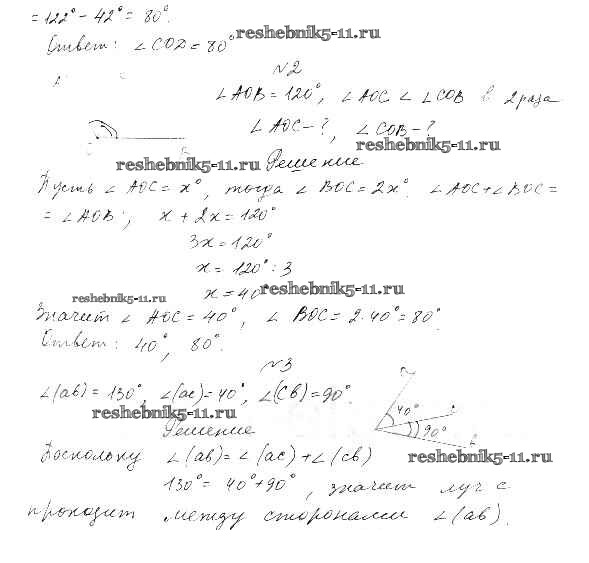 = 122° - 42° = 80°.
Ответ: ∠COD = 80°
reshebnik5-11.ru
№2
∠AOB = 120°, ∠AOC < ∠COB в 2 раза
∠AOC - ?, ∠COB - ?
reshebnik5-11.ru
reshebnik5-11.ru Решение
Пусть ∠AOC = x°, тогда ∠BOC = 2x°. ∠AOC + ∠BOC =
= ∠AOB; x + 2x = 120°
3x = 120°
x = 120° : 3
x = 40° reshebnik5-11.ru
reshebnik5-11.ru
Значит ∠AOC = 40°, ∠BOC = 2·40° = 80°
Ответ: 40°, 80°.
№3
∠(ab) = 130°, ∠(ac) = 40°, ∠(cb) = 90°.
40°
90°
reshebnik5-11.ru
Решение
Поскольку ∠(ab) = ∠(ac) + ∠(cb)
reshebnik5-11.ru
130° = 40° + 90°, значит луч c
проходит между сторонами ∠(ab).